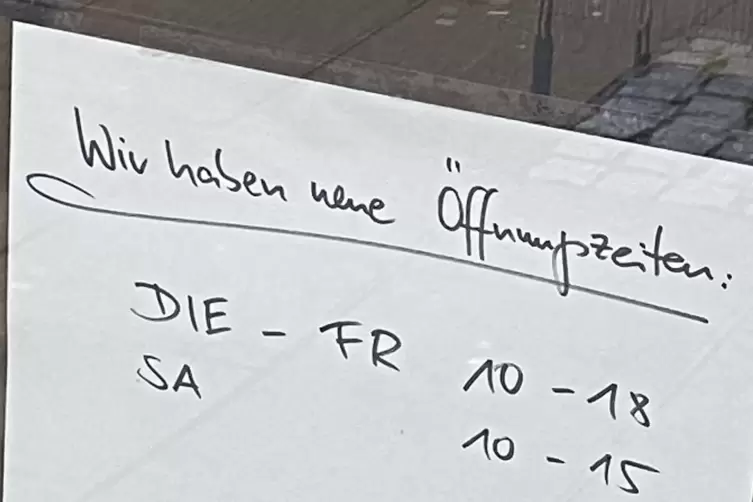 Wir haben neue Öffnungszeiten:
DIE - FR 10 - 18
SA 10 - 15